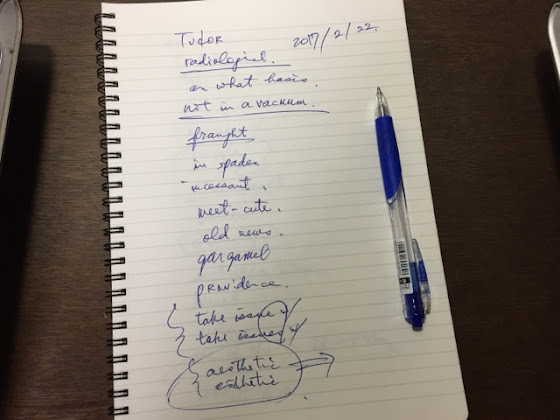 Tudor 2017/2/22.
radiological.
on what basis.
not in a vacuum.
fraught
in spades
incessant.
meet-cute.
old news.
gargamel
providence.
take issue w/
take issues w/
aesthetic
esthetic